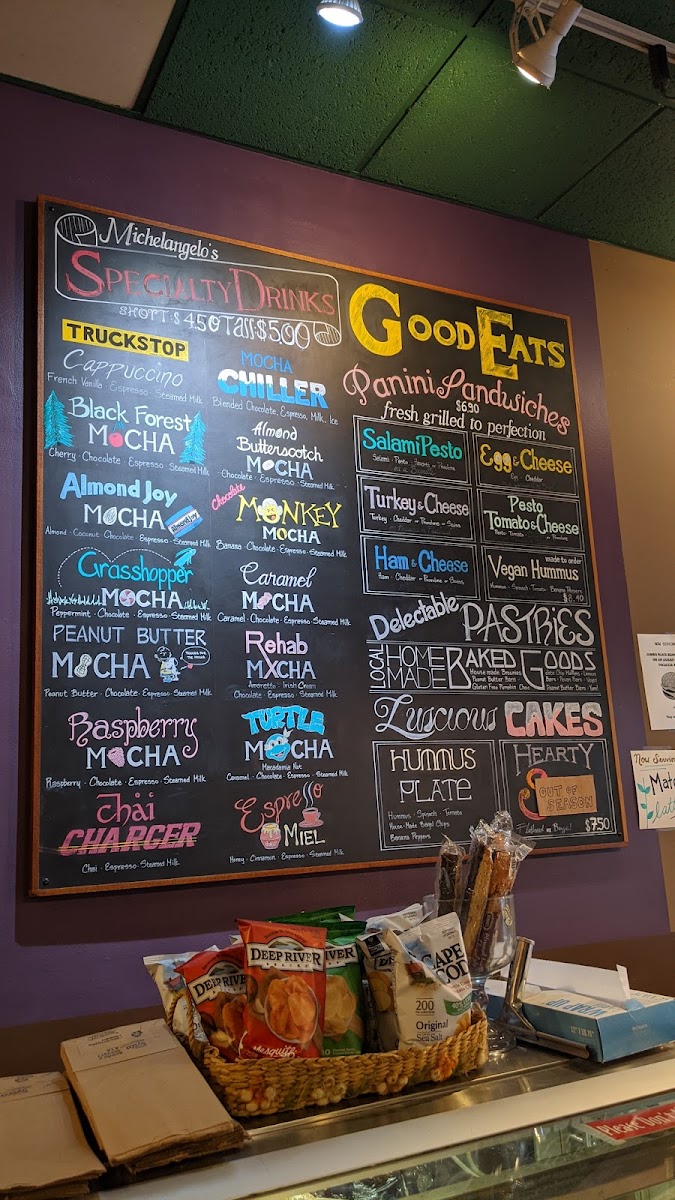 Michelangelo's
SPECIALTY DRINKS
SHORT $ 4.50 Tall $ 5.00
TRUCKSTOP
Cappuccino
French Vanilla · Espresso · Steamed Milk
Black Forest
MOCHA
Cherry · Chocolate · Espresso · Steamed Milk
Almond Joy
MOCHA
Almond · Coconut · Chocolate · Espresso · Steamed Milk
Grasshopper
MOCHA
Peppermint · Chocolate · Espresso · Steamed Milk
PEANUT BUTTER
MOCHA
Peanut Butter · Chocolate · Espresso · Steamed Milk
Raspberry
MOCHA
Raspberry · Chocolate · Espresso · Steamed Milk
Chai
CHARGER
Chai · Espresso · Steamed Milk
MOCHA
CHILLER
Blended Chocolate, Espresso, Milk, Ice
Almond
Butterscotch
MOCHA
Chocolate · Espresso · Steamed Milk
Chocolate
MONKEY
MOCHA
Banana · Chocolate · Espresso · Steamed Milk
Caramel
MOCHA
Caramel · Chocolate · Espresso · Steamed Milk
Rehab
MXCHA
Amaretto · Irish Cream
Chocolate · Espresso · Steamed Milk
TURTLE
MOCHA
Macadamia Nut
Caramel · Chocolate · Espresso · Steamed Milk
Espresso
MIEL
Honey · Cinnamon · Espresso · Steamed Milk
GOOD EATS
Panini Sandwiches
$6.90
fresh grilled to perfection
Salami Pesto
Egg & Cheese
Egg · Cheddar
Turkey & Cheese
Turkey · Cheddar or Provolone
Pesto
Tomato & Cheese
Pesto · Tomato
Ham & Cheese
Ham · Cheddar or Provolone
made to order
Vegan Hummus
Hummus · Spinach · Tomato · Banana Peppers
Delectable PASTRIES
LOCAL HOME MADE BAKED GOODS
Peanut Butter Bars
Gluten Free Pumpkin Choc
Luscious CAKES
HUMMUS
PLATE
Hummus · Spinach · Tomato
House-Made Bagel Chips
Banana Peppers
HEARTY
OUT OF
SEASON
$7.50
Now Serving
DEEP RIVER
DEEP RIVER
Mesquite
RIVER
CAPE
COD
200
Original
Sea Salt
Please Don't